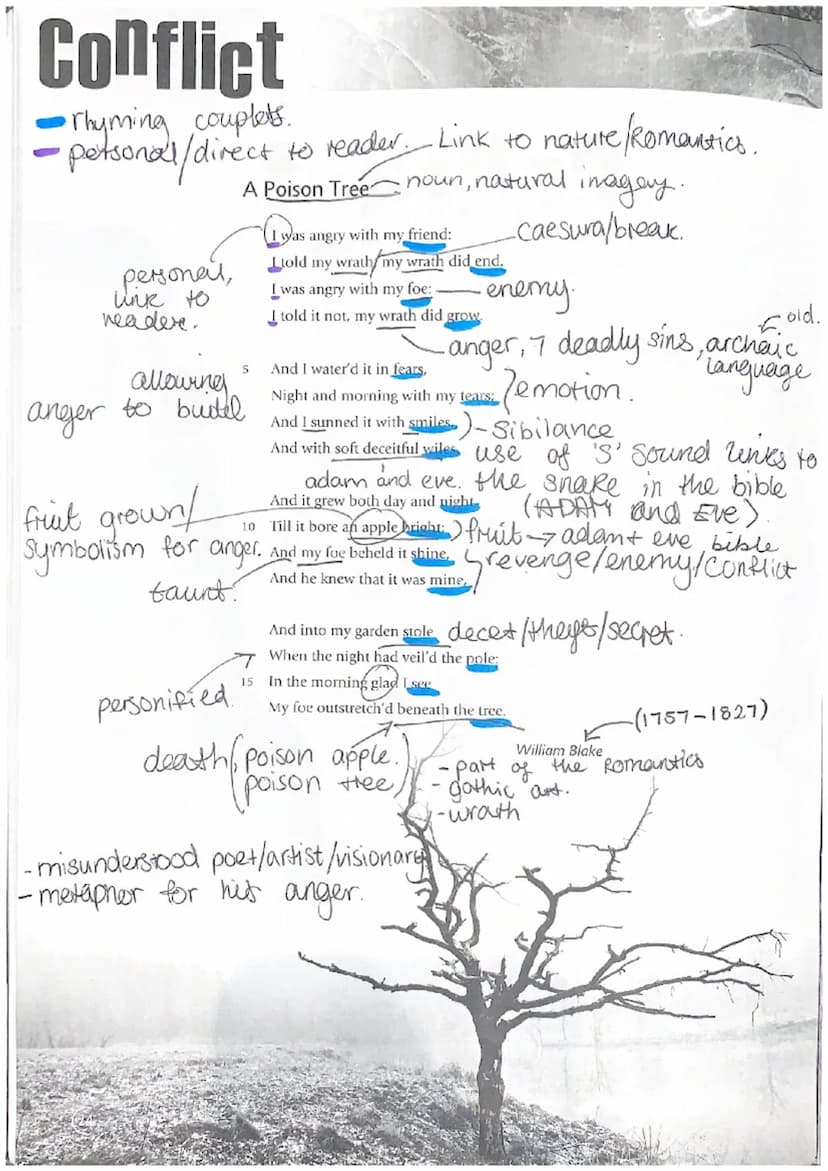 Conflict
rhyming couplets.
personal/direct to reader. Link to nature/Romantics.
A Poison Tree noun, natural imagery.
I was angry with my friend: caesura/break.
I told my wrath/my wrath did end.
personal, link to reader.
I was angry with my foe: enemy.
I told it not, my wrath did grow.
anger, 7 deadly sins, archaic language
old.
5 And I water'd it in fears,
allowing anger to build
Night and morning with my tears; emotion.
And I sunned it with smiles, - Sibilance
And with soft deceitful wiles. use of 's' sound links to
adam and eve. the snake in the bible
And it grew both day and night, (ADAM and EVE)
fruit grown/
symbolism for anger.
10 Till it bore an apple bright; fruit → adam + eve bible
And my foe beheld it shine, revenge/enemy/conflict
taunt.
And he knew that it was mine,
And into my garden stole decet/theft/secret.
When the night had veil'd the pole;
personified.
15 In the morning glad I see
My foe outstretch'd beneath the tree.
William Blake (1757-1827)
death (poison apple.
poison tree)
- part of the Romantics
- gothic art.
- wrath
- misunderstood poet/artist/visionary
- metaphor for his anger.